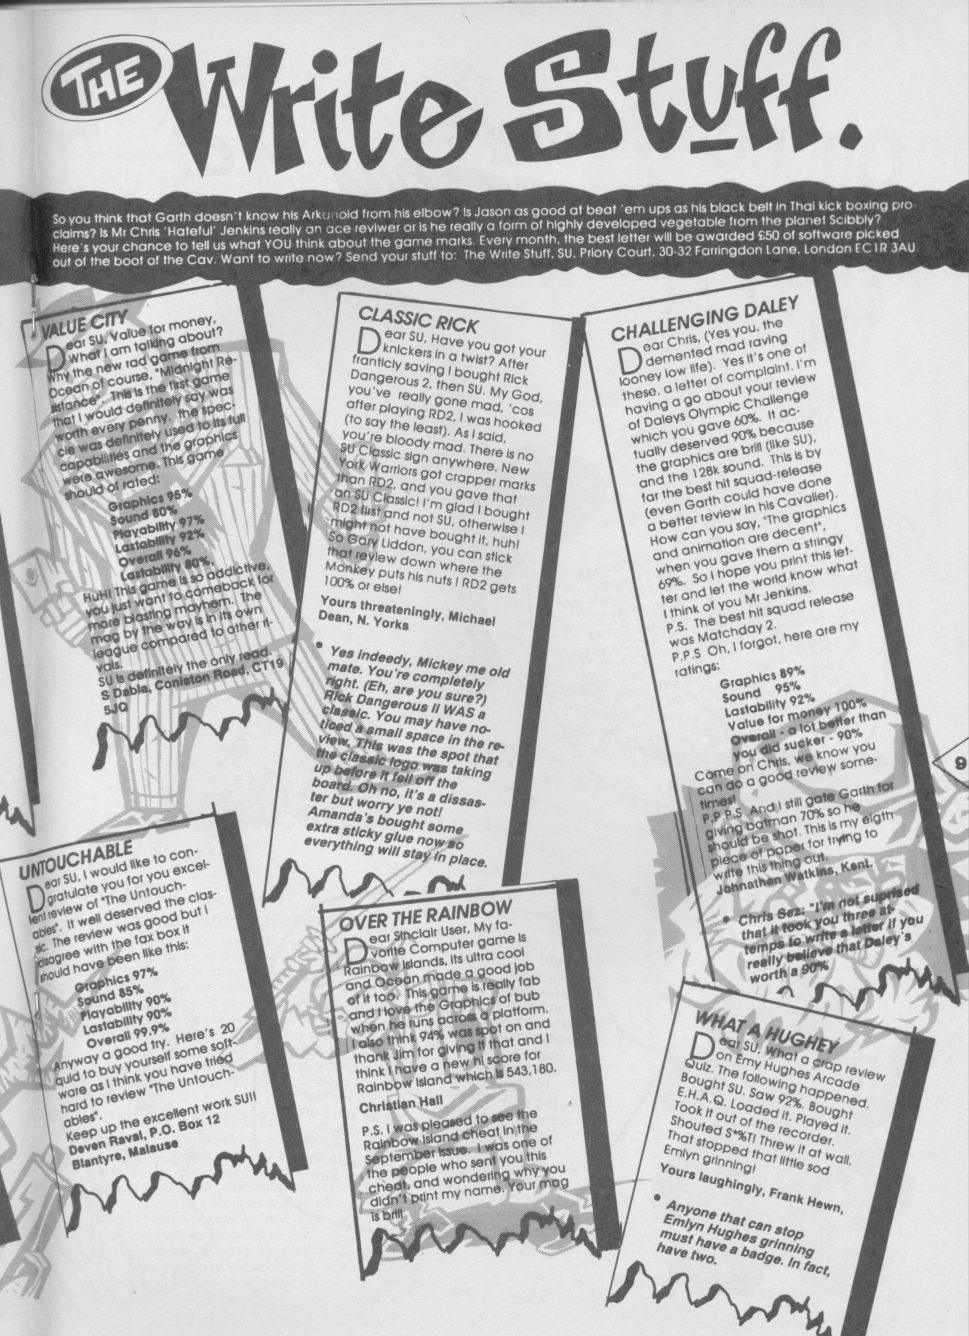 THE Write Stuff.
So you think that Garth doesn't know his Arkunoid from his elbow? Is Jason as good at beat 'em ups as his black belt in Thai kick boxing pro
claims? Is Mr Chris 'Hateful' Jenkins really an ace reviwer or is he really a form of highly developed vegetable from the planet Scibbly?
Here's your chance to tell us what YOU think about the game marks. Every month, the best letter will be awarded £50 of software picked
out of the boot of the Cav. Want to write now? Send your stuff to: The Write Stuff, SU, Priory Court, 30-32 Farringdon Lane, London EC1R 3AU
VALUE CITY
Dear SU, Value for money,
What I am talking about?
Why the new rad game from
Ocean of course, "Midnight Re-
sistance". This is the first game
that I would definitely say was
worth every penny. the spec-
cie was definitely used to its full
capabilities and the graphics
were awesome. This game
should of rated:
Graphics 95%
Sound 80%
Playability 97%
Lastability 92%
Overall 96%
Lastability 80%,
Huh! This game is so addictive,
you just want to comeback for
more blasting mayhem. The
mag by the way is in its own
league compared to other ri-
vals.
SU is definitely the only read.
S Dabla, Coniston Road, CT19
5JQ
UNTOUCHABLE
Dear SU, I would like to con-
gratulate you for you excel-
lent review of "The Untouch-
ables". It well deserved the clas-
sic. The review was good but I
disagree with the fax box it
should have been like this:
Graphics 97%
Sound 85%
Playability 90%
Lastability 90%
Overall 99.9%
Anyway a good try. Here's 20
quid to buy yourself some soft-
ware as I think you have tried
hard to review "The Untouch-
ables".
Keep up the excellent work SU!!
Deven Raval, P.O. Box 12
Blantyre, Malause
CLASSIC RICK
Dear SU, Have you got your
knickers in a twist? After
franticly saving I bought Rick
Dangerous 2, then SU. My God,
you've really gone mad, 'cos
after playing RD2, I was hooked
(to say the least). As I said,
you're bloody mad. There is no
SU Classic sign anywhere. New
York Warriors got crapper marks
than RD2, and you gave that
an SU Classic! I'm glad I bought
RD2 first and not SU, otherwise I
might not have bought it, huh!
So Gary Liddon, you can stick
that review down where the
Monkey puts his nuts ! RD2 gets
100% or else!
Yours threateningly, Michael
Dean, N. Yorks
• Yes indeedy, Mickey me old
mate. You're completely
right. (Eh, are you sure?)
Rick Dangerous II WAS a
classic. You may have no-
ticed a small space in the re-
view. This was the spot that
the classic logo was taking
up before it fell off the
board. Oh no, it's a dissas-
ter but worry ye not!
Amanda's bought some
extra sticky glue now so
everything will stay in place.
OVER THE RAINBOW
Dear Sinclair User, My fa-
vorite Computer game is
Rainbow Islands, its ultra cool
and Ocean made a good job
of it too. This game is really fab
and I love the Graphics of bub
when he runs across a platform.
I also think 94% was spot on and
thank Jim for giving it that and I
think I have a new hi score for
Rainbow Island which is 543,180.
Christian Hall
P.S. I was pleased to see the
Rainbow Island cheat in the
September issue. I was one of
the people who sent you this
cheat, and wondering why you
didn't print my name. Your mag
is brill
CHALLENGING DALEY
Dear Chris, (Yes you, the
demented mad raving
looney low life). Yes it's one of
these, a letter of complaint. I'm
having a go about your review
of Daleys Olympic Challenge
which you gave 60%. It ac-
tually deserved 90% because
the graphics are brill (like SU),
and the 128k sound. This is by
far the best hit squad-release
(even Garth could have done
a better review in his Cavalier).
How can you say, "The graphics
and animation are decent",
when you gave them a stringy
69%. So I hope you print this let-
ter and let the world know what
I think of you Mr Jenkins.
P.S. The best hit squad release
was Matchday 2.
P.P.S Oh, I forgot, here are my
ratings:
Graphics 89%
Sound 95%
Lastability 92%
Value for money 100%
Overall - a lot better than
you did sucker - 90%
Come on Chris, we know you
can do a good review some-
times!
P.P.P.S And I still gate Garth for
giving batman 70% so he
should be shot. This is my eigth
piece of paper for trying to
write this thing out.
Johnathen Watkins, Kent.
• Chris Sez: "I'm not suprised
that it took you three at-
temps to write a letter if you
really believe that Daley's
worth a 90%
9
WHAT A HUGHEY
Dear SU, What a crap review
on Emy Hughes Arcade
Quiz. The following happened.
Bought SU. Saw 92%. Bought
E.H.A.Q. Loaded it. Played it.
Took it out of the recorder.
Shouted S*%T! Threw it at wall.
That stopped that little sod
Emlyn grinning!
Yours laughingly, Frank Hewn,
• Anyone that can stop
Emlyn Hughes grinning
must have a badge. In fact,
have two.